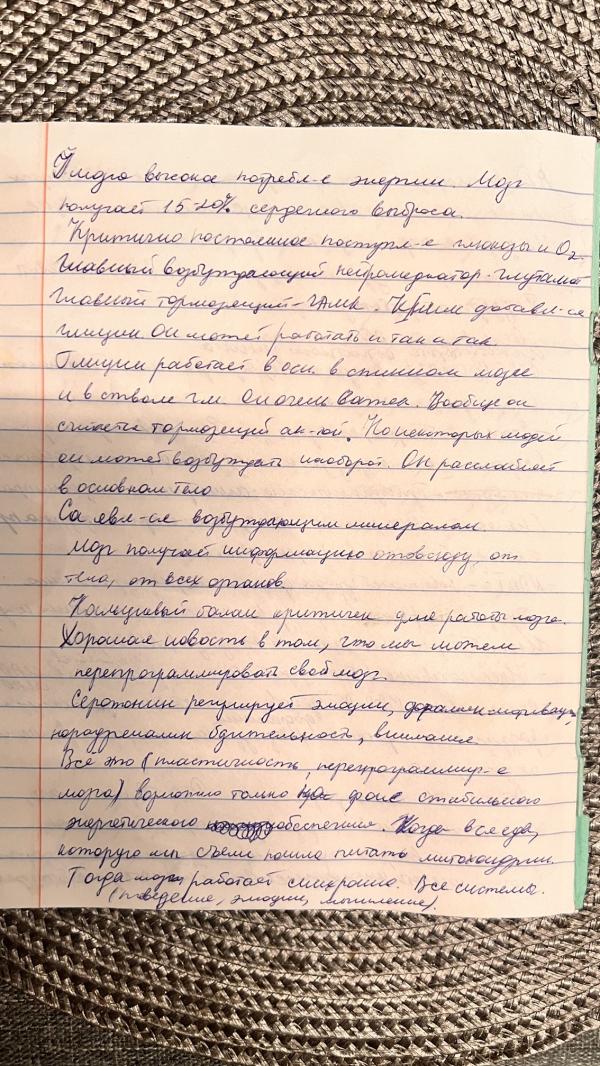 У мозга высокое потребл-е энергии. Мозг
получает 15-20% сердечного выброса.
Критично постоянное поступл-е глюкозы и O₂.
Главный возбуждающий нейромедиатор - глутамат
Главный тормозящий - ГАМК. К ним добавл-ся
глицин. Он может работать и так и так
Глицин работает в осн. в спинном мозге
и в стволе г.м. Он очень важен. Вообще он
считается тормозящей ак-той. Но некоторых людей
он может возбуждать наоборот. Он расслабляет
в основном тело
Ca явл-ся возбуждающим минералом.
Мозг получает информацию отовсюду, от
тела, от всех органов.
Кальциевый баланс критичен для работы мозга.
Хорошая новость в том, что мы можем
перепрограммировать свой мозг.
Серотонин регулирует эмоции, дофамин мотивацию,
норадреналин бдительность, внимание.
Все это (пластичность, перепрограммир-е
мозга) возможно только на фоне стабильного
энергетического обеспечения. Когда вся еда,
которую мы съели пошла питать митохондрии.
Тогда мозг работает синхронно. Все системы.
(поведение, эмоции, мышление).